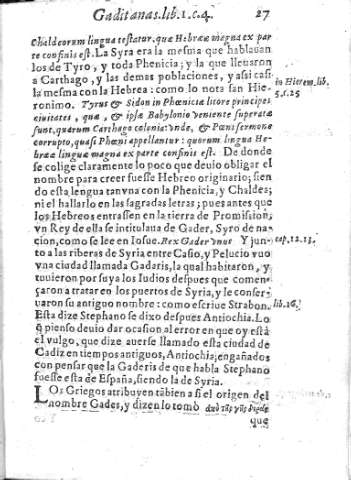 Gaditanas.lib.1.c.4. 27
Chaldeorum lingua testatur. quæ Hebreæ magna ex par
te confinis est. La Syra era la mesma que hablauan
los de Tyro, y toda Phenicia; y la que lleuaron
a Carthago, y las demas poblaciones, y assi casi
la mesma con la Hebrea: como lo nota san Hie-
ronimo. Tyrus & Sidon in Phœnicæ litore principes
ciuitates, quæ, & ipsæ Babylonio veniente superatæ
sunt, quarum Carthago colonia: vnde, & Pœni sermone
corrupto, quasi Phœni appellantur: quorum lingua He-
brææ linguæ magna ex parte confinis est. De donde
se colige claramente lo poco que deuio obligar el
nombre para creer fuesse Hebreo originario; sien
do esta lengua tan vna con la Phenicia, y Chaldea;
ni el hallarlo en las sagradas letras; pues antes que
los Hebreos entrassen en la tierra de Promision,
vn Rey de ella se intitulaua de Gader, Syro de na-
cion, como se lee en Iosue. Rex Gader vnus Y jun-
to a las riberas de Syria, entre Casio, y Pelucio vuo
vna ciudad llamada Gadaris, la qual habitaron, y
tuuieron por suya los Iudios despues que comen-
çaron a tratar en los puertos de Syria, y le conser-
uaron su antiguo nombre: como escriue Strabon.
Esta dize Stephano se dixo despues Antiochia. Lo
q̃ pienso deuio dar ocasion al error en que oy està
el vulgo, que dize auerse llamado esta ciudad de
Cadiz en tiempos antiguos, Antiochia; engañados
con pensar que la Gaderis de que habla Stephano
fuesse esta de España, siendo la de Syria.
LOs Griegos atribuyen tãbien a si el origen del
nombre Gades, y dizen lo tomò ἀπὸ τῆς γῆς
que
in Hierem. lib.
5. c. 25
cap. 12. 13.
lib. 16.